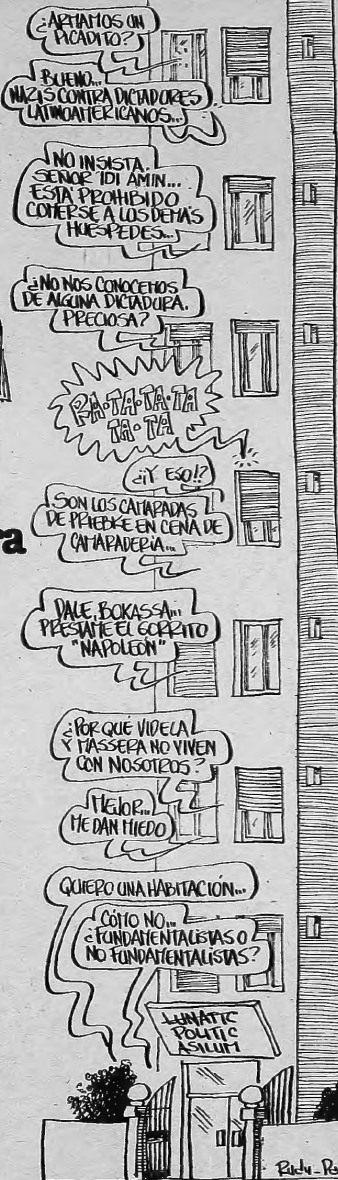 ¿ARMAMOS UN
PICADITO?
BUENO...
NAZIS CONTRA DICTADORES
LATINOAMERICANOS...
NO INSISTA,
SEÑOR IDI AMIN...
ESTÁ PROHIBIDO
COMERSE A LOS DEMÁS
HUESPEDES...
¿NO NOS CONOCEMOS
DE ALGUNA DICTADURA,
PRECIOSA?
RA-TA-TA-TA
TA-TA
¿¡Y ESO!?
SON LOS CAMARADAS
DE PRIEBKE EN CENA DE
CAMARADERIA...
ra
DALE, BOKASSA...
PRESTAME EL GORRITO
"NAPOLEÓN"
¿POR QUÉ VIDELA
Y MASSERA NO VIVEN
CON NOSOTROS?
MEJOR...
ME DAN MIEDO
QUIERO UNA HABITACIÓN...
CÓMO NO...
¿FUNDAMENTALISTAS O
NO FUNDAMENTALISTAS?
LUNATIC
POLITIC
ASILUM
Rudy-